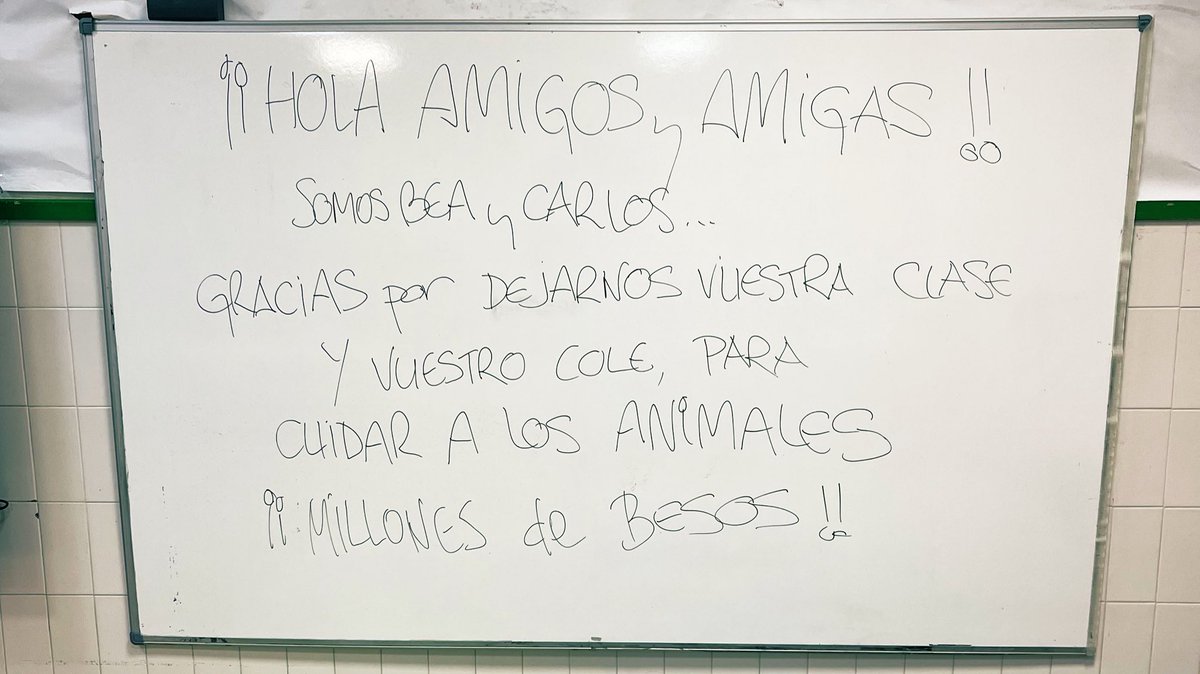 ¡¡HOLA AMIGOS y AMIGAS!!
SOMOS BEA y CARLOS...
GRACIAS por DEJARNOS VUESTRA CLASE
Y VUESTRO COLE, PARA
CUIDAR A LOS ANIMALES
¡¡MILLONES de BESOS!!